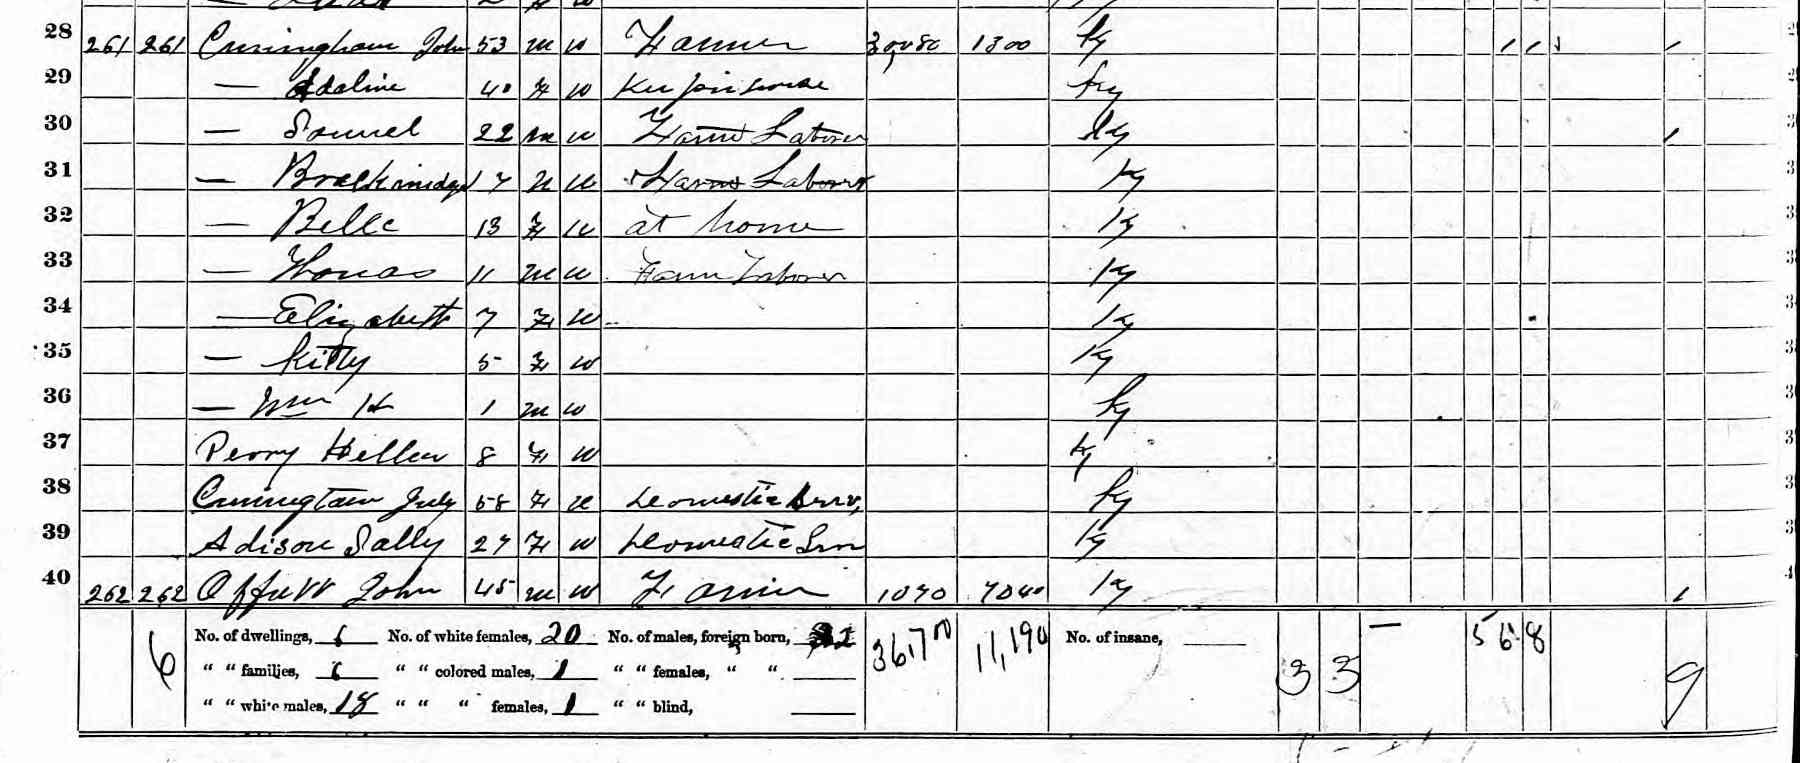 28 261 261 Cuningham John 53 m w Farmer 1300 Ky
29 — Adaline 40 F w Keeping house Ky
30 — Samuel 22 m w Farm Laborer Ky
31 — Breckinridge 17 m w Farm Laborer Ky
32 — Belle 13 F w at home Ky
33 — Thomas 11 m w Farm Laborer Ky
34 — Elizabeth 7 F w Ky
35 — Kitty 5 F w Ky
36 — Wm H 1 m w Ky
37 Perry Hellen 8 F w Ky
38 Cuningham July 58 F w Domestic Serv, Ky
39 Adison Sally 27 F w Domestic Serv Ky
40 262 262 Offutt John 45 m w Farmer Ky
6 No. of dwellings, 6 No. of white females, 20 No. of males, foreign born, 361700 11,190 No. of insane, 3 3 — 5 6 8 9
" " families, 6 " " colored males, 1 " " females, " "
" " white males, 18 " " " females, 1 " " blind,